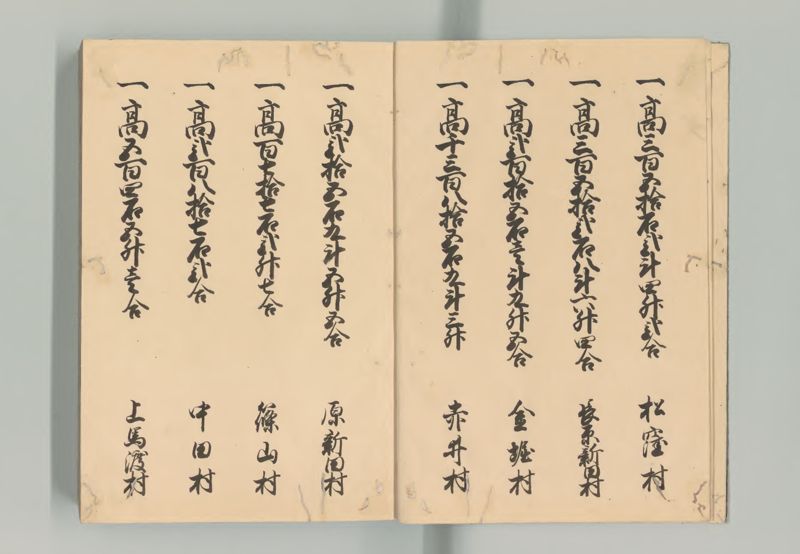 一高三百五拾石弐斗四升弐合 松窪村
一高三百五拾弐石八斗六升四合 新田村
一高弐百拾五石壱斗九升五合 金堀村
一高千三百八拾五石九斗三升 赤井村
一高弐拾五石九斗五升五合 原新田村
一高百七拾七石弐升七合 篠山村
一高弐百八拾七石弐合 中田村
一高五百四石五升壱合 上馬渡村